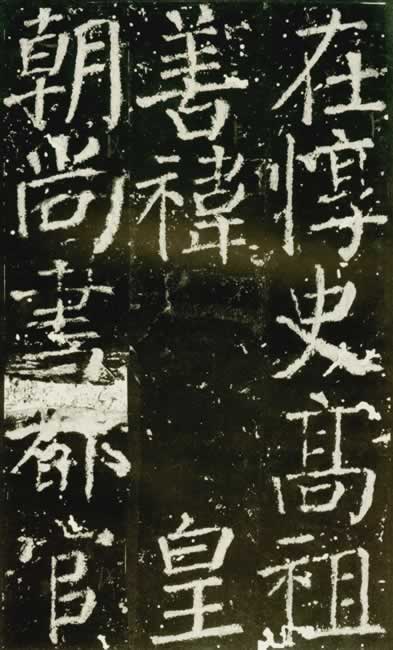 在惇史高祖
善禕皇
朝尚書都官